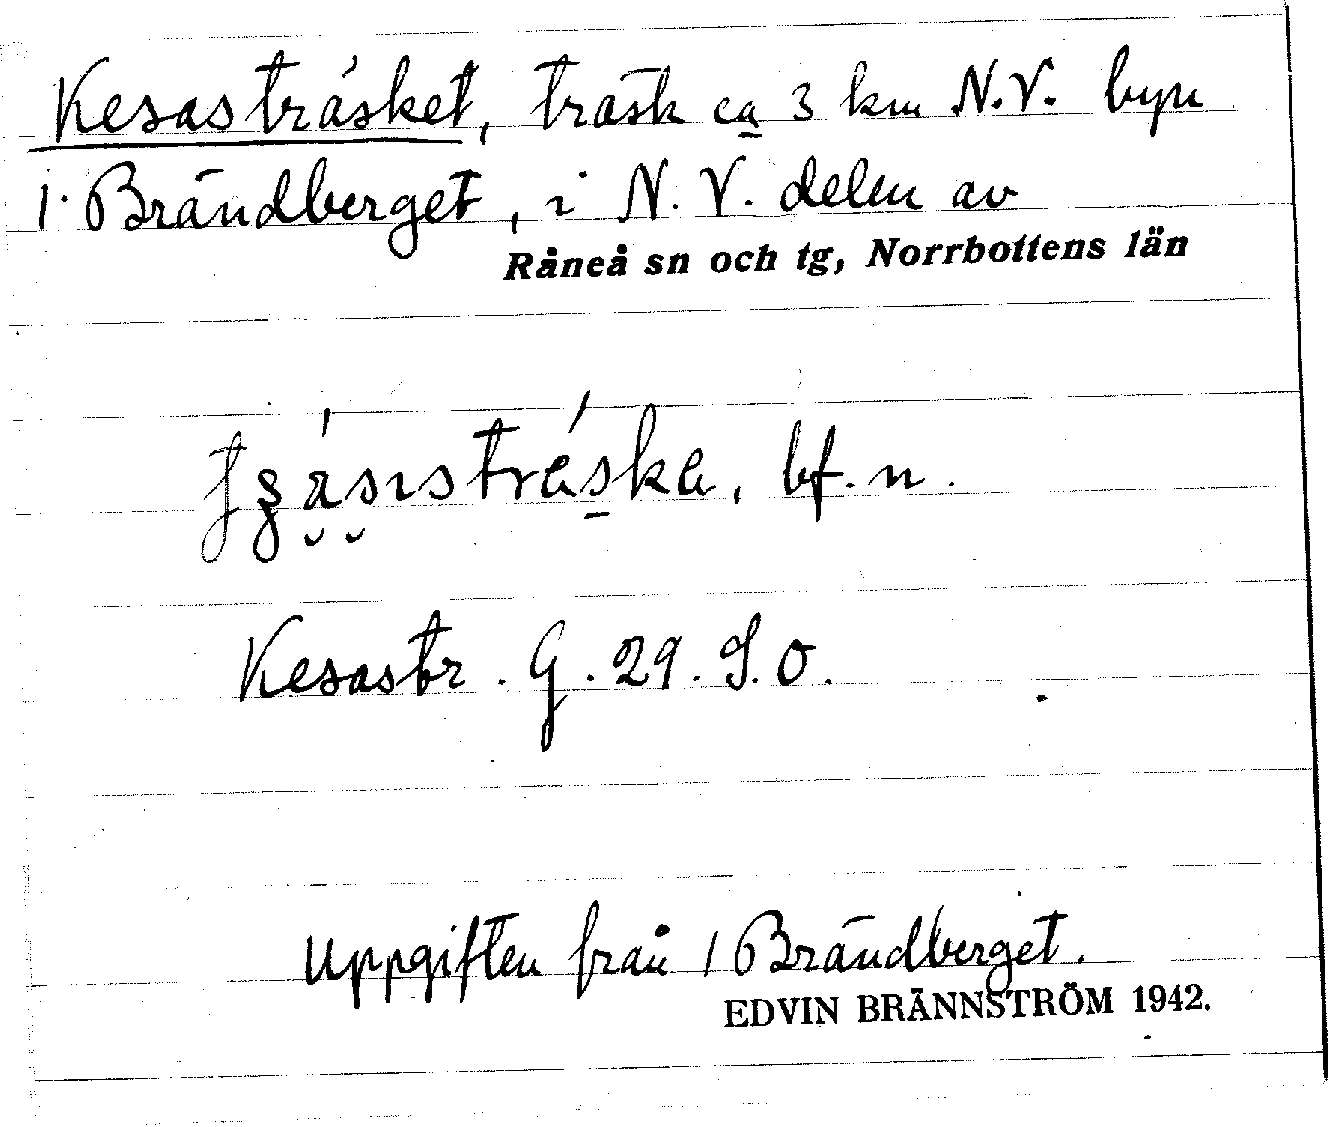 Kesasträsket, träsk ca 3 km N.V. byn
1. Brändberget, i N.V. delen av
Råneå sn och tg, Norrbottens län
bf. n.
Kesastr. G. 29. S.O.
Uppgiften från 1 Brändberget.
EDVIN BRÄNNSTRÖM 1942.